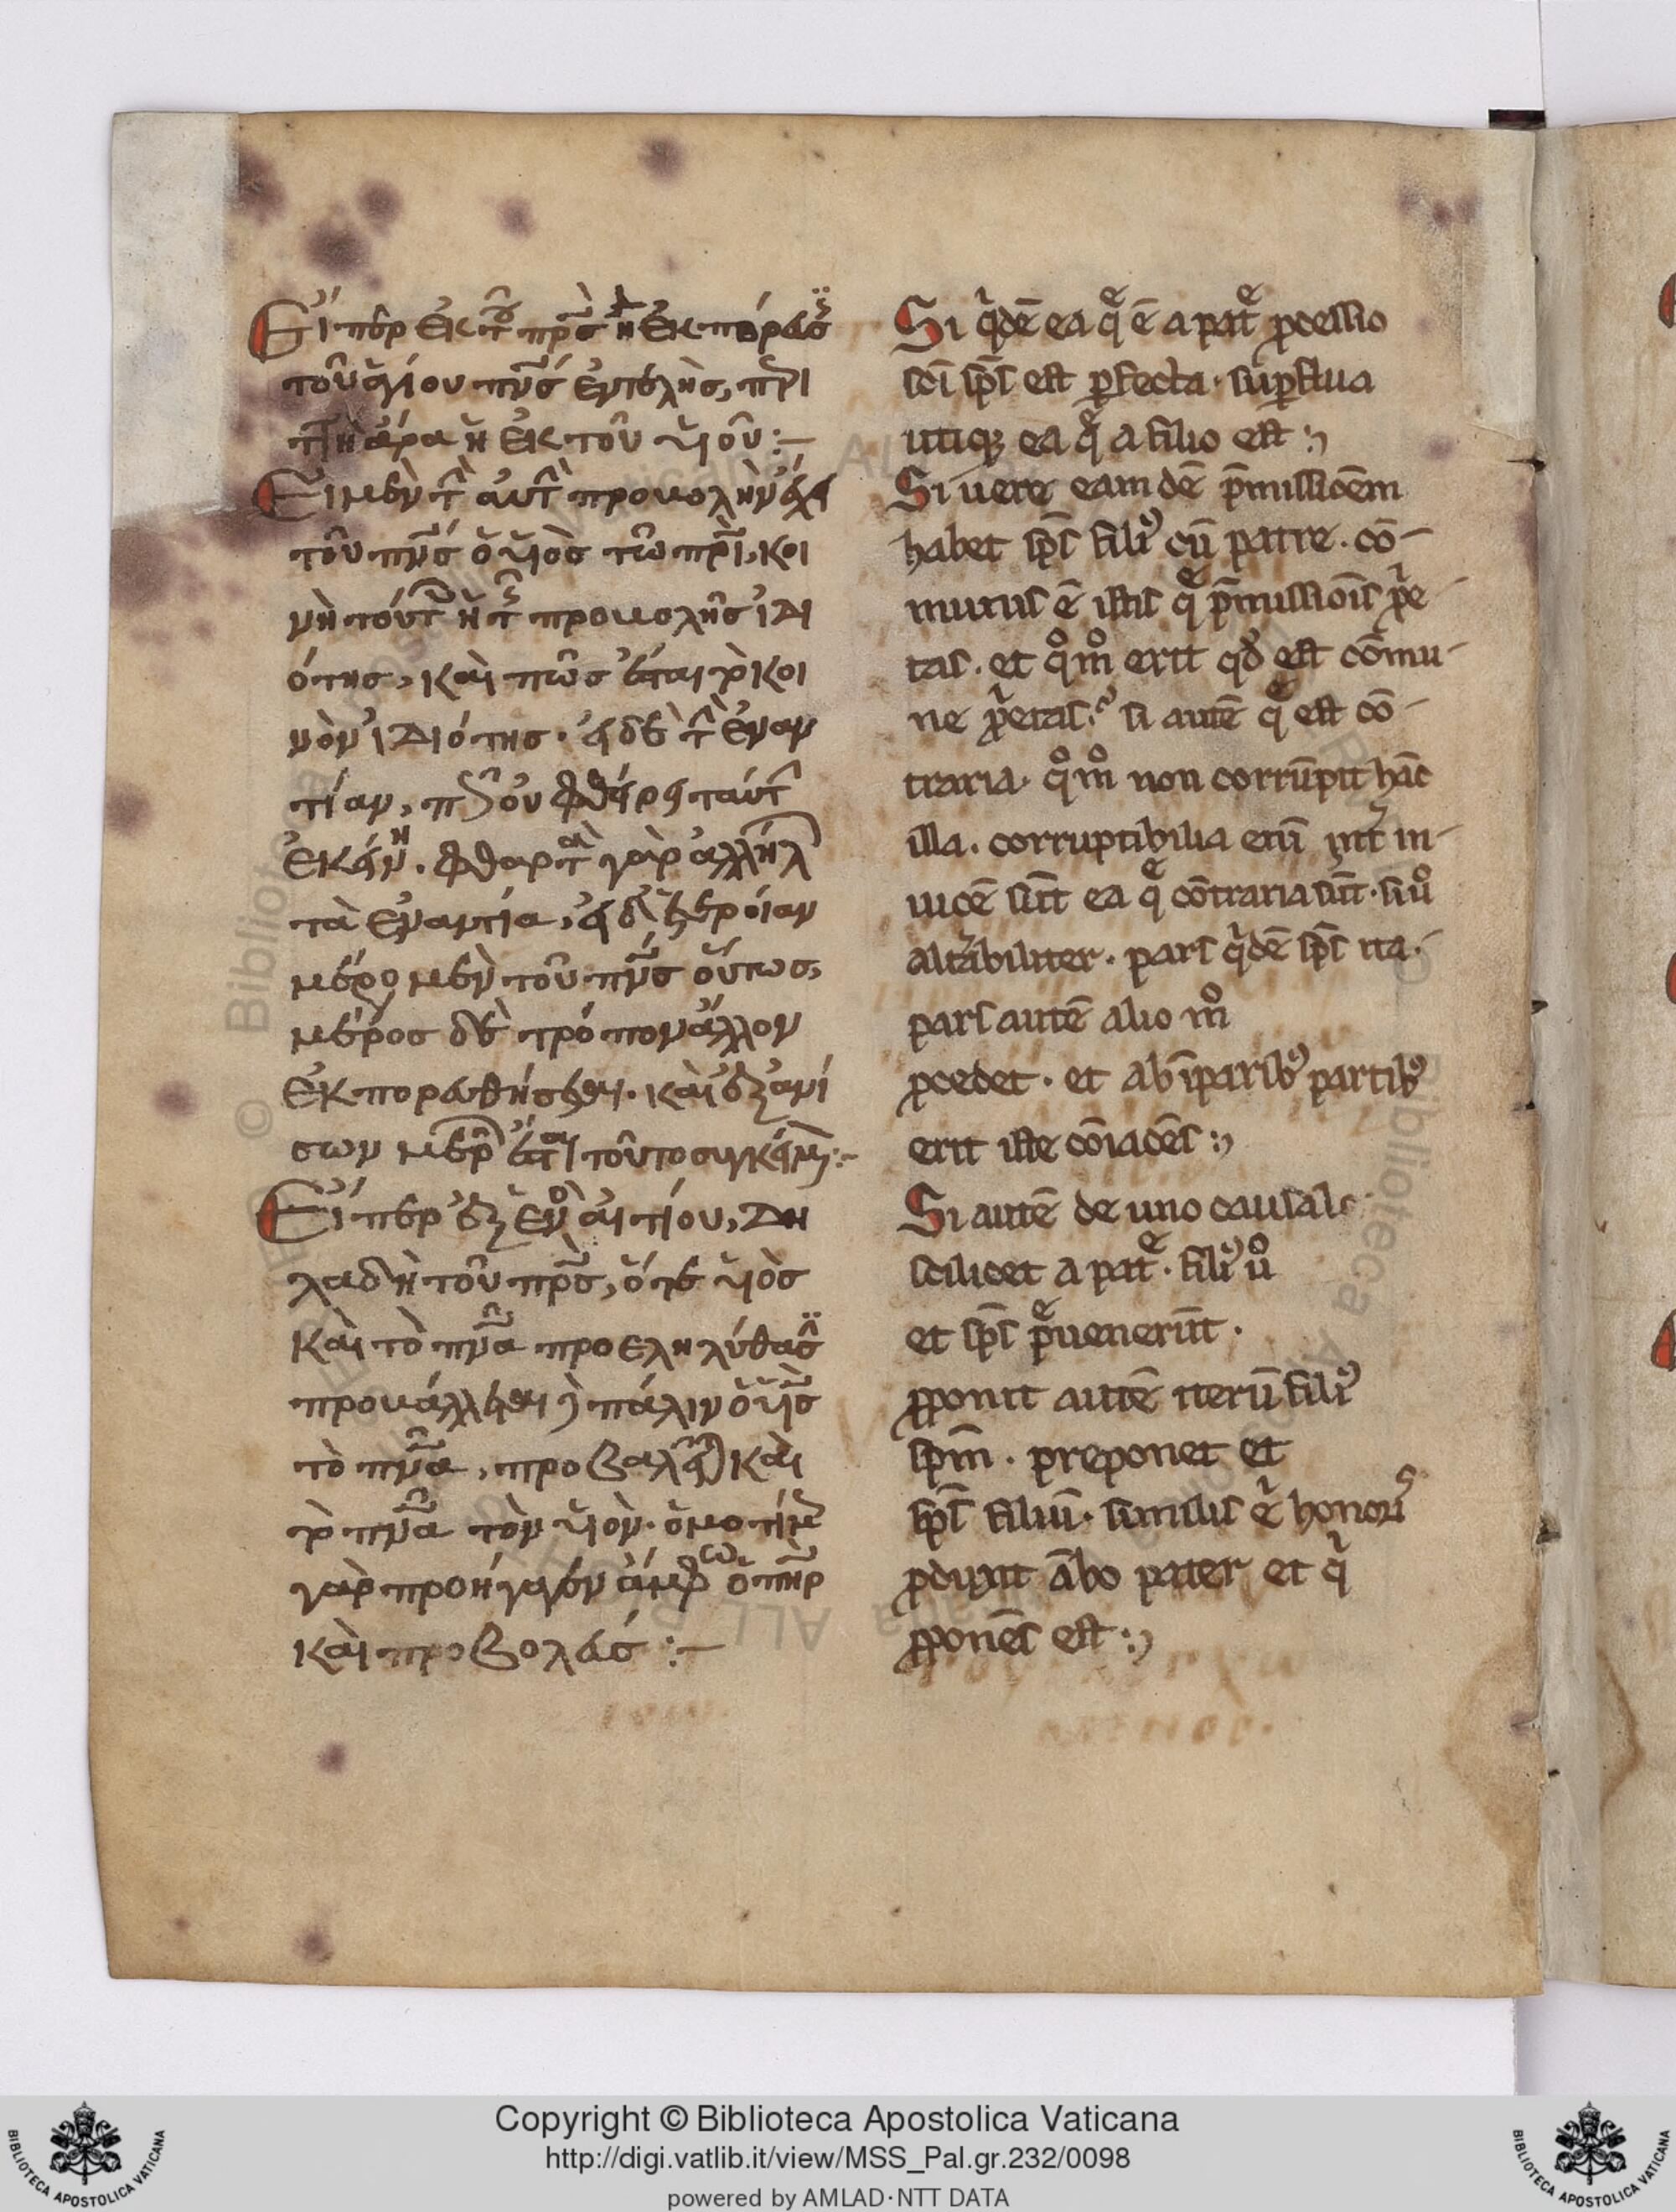 Εἴπερ ἐκ τοῦ πρς ἡ ἐκπόρευσ
τοῦ ἁγίου πνς ἐντελὴς, περι
τὴ ἄρα ἡ ἐκ τοῦ υἱοῦ:—
Εἰ μὲν τὴν αὐτὴν προβολὴν ἔχει
τοῦ πνς ὁ υἱὸς τῶ πρι, κοι
νὴ τούτ ἡ τῆς προβολῆς ἰδι
ότης, καὶ πῶς ἔσται τὸ κοι
νὸν ἰδιότης. εἰ δὲ τὴν ἐναν
τίαν, πῶς οὐ φθείρει ταύτ
ἐκείνη. φθαρτὰ γὰρ ἀλλήλ
τὰ ἐναντία, εἰ δ' ἑτεροίαν
μέρος μὲν τοῦ πνς οὕτως,
μέρος δὲ τρόπον ἄλλον
ἐκπορευθήσεται. καὶ ἐξ ἀνί
σων μερῶ ἔσται τοῦτο συγκείμε:—
Εἴπερ ἐξ ἑνὸς αἰτίου, δη
λαδὴ τοῦ πρς, ὅ τε υἱὸς
καὶ τὸ πνα προεληλύθασ
προβάλλεται δὲ πάλιν ὁ υἱς
τὸ πνα, προβαλεῖ καὶ
τὸ πνα τὸν υἱὸν. ὁμοτίμ
γὰρ προήγαγεν ἄμφω ὁ πηρ
καὶ προβολεύς:—
Si qdē ea q ē a pat pcessio
sci sps est pfecta. supflua
utiqз ea q a filio est:
Si uere eamdē pmissioēm
habet sps fili' cū patre. cō-
munis ē istis q pmissiois ppe
tas. et qom erit qd est cōmu-
ne ppetas? si autē q est cō-
traria. qom non corrūpit hāc
illa. corruptibilia enī int in-
uicē sūt ea q cōtraria sūt. si uo
altābiliter. pars qdē sps ita.
pars autē alio mo
pcedet. et ab īparib' partib'
erit iste cōiacēs:
Si autē de uno causal
scilicet a pat. fili' uo
et sps puenerūt.
pponit autē iterū fili'
spm. preponet et
sps filiū. similis e honoris
pduxit ābo pater et q
pponēs est:
Copyright © Biblioteca Apostolica Vaticana
http://digi.vatlib.it/view/MSS_Pal.gr.232/0098
powered by AMLAD·NTT DATA
BIBLIOTECA APOSTOLICA VATICANA
BIBLIOTECA APOSTOLICA VATICANA